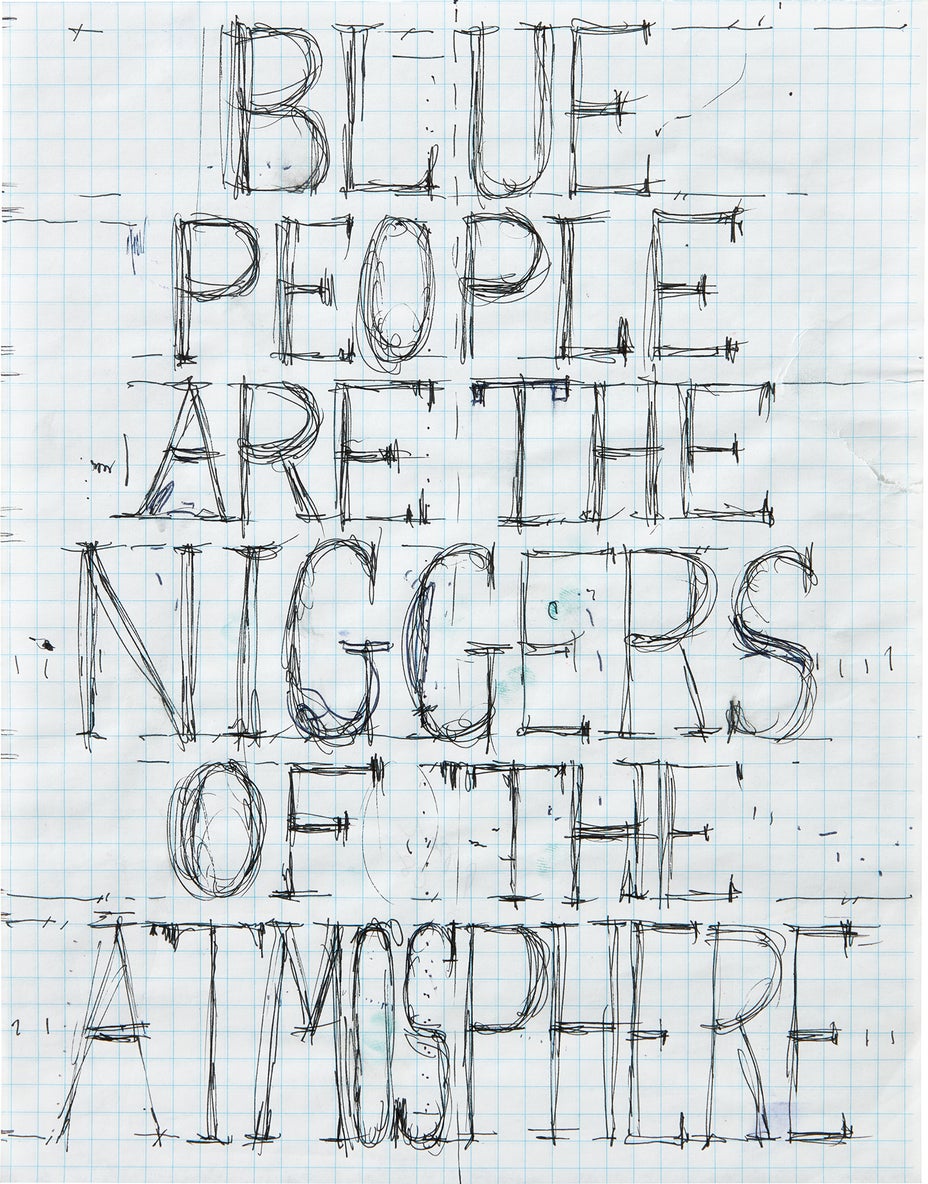 BLUE
PEOPLE
ARE THE
NIGGERS
OF THE
ATMOSPHERE